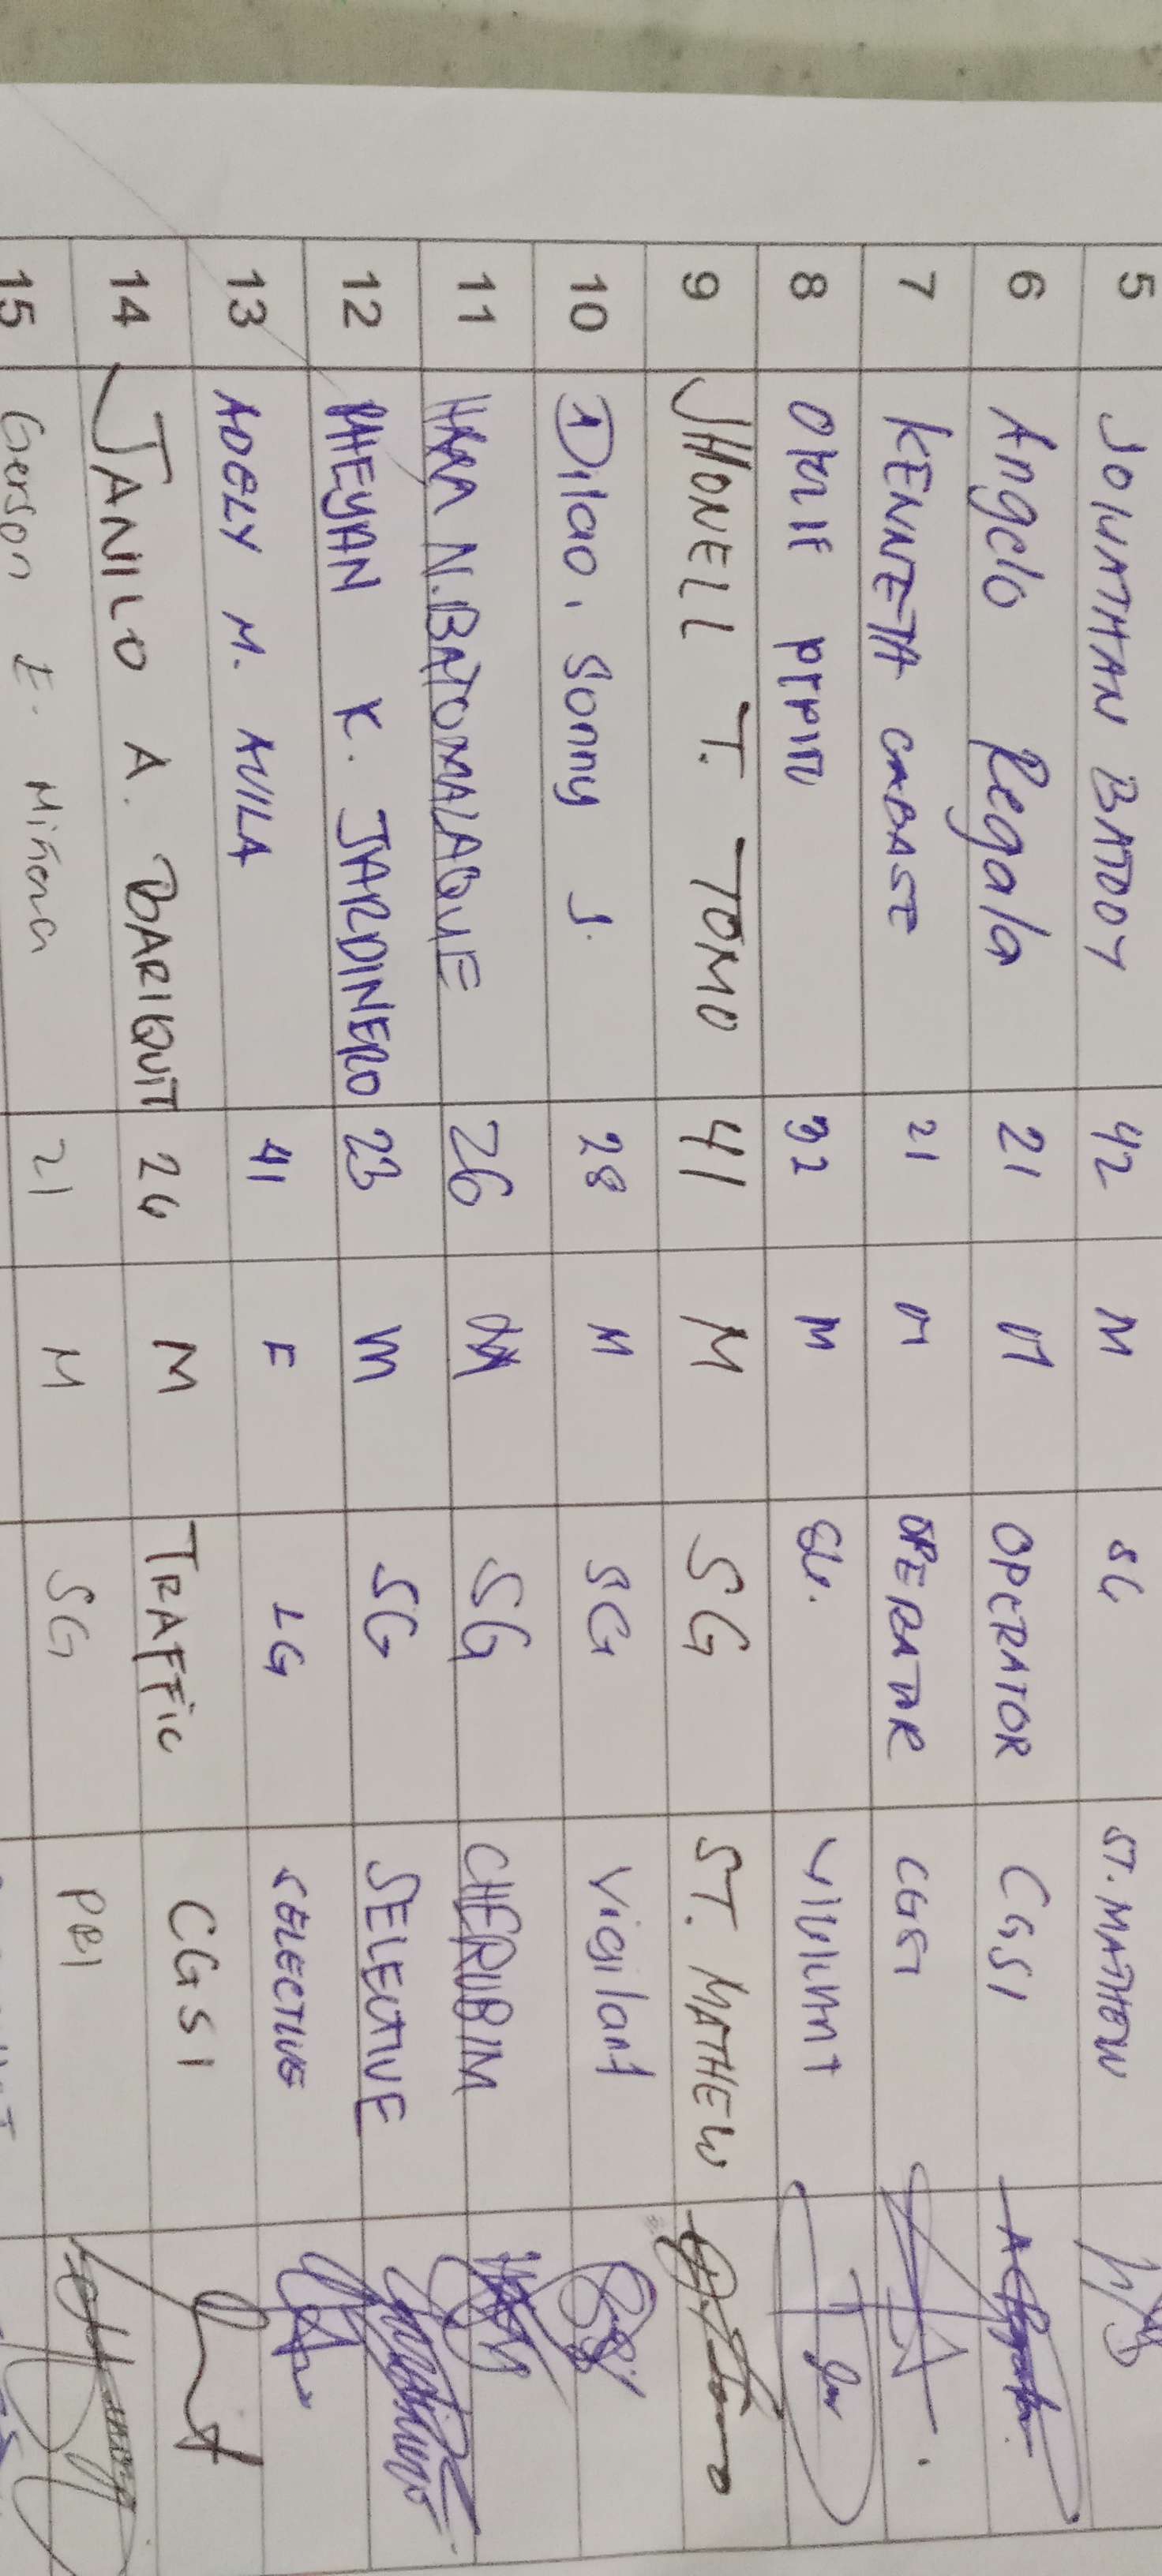 5 JOHNATHAN BATDOY 42 M SG ST. MATHEW
6 Angelo Regala 21 M OPERATOR CGSI
7 KENNETH CABASE 21 M OPERATOR CGSI
8 32 M SG.
9 JHONELL T. TOMO 41 M SG ST. MATHEW
10 Dilao, Sonny J. 28 M SG Vigilant
11 N. BATOMALAQUE 26 M SG CHERUBIM
12 RHEYAN K. JARDINERO 23 M SG SELECTIVE
13 ADELY M. AVILA 41 F LG SELECTIVE
14 JANILO A. BARIQUIT 24 M TRAFFIC CGSI
15 Gerson E. Miñoza 21 M SG PBI